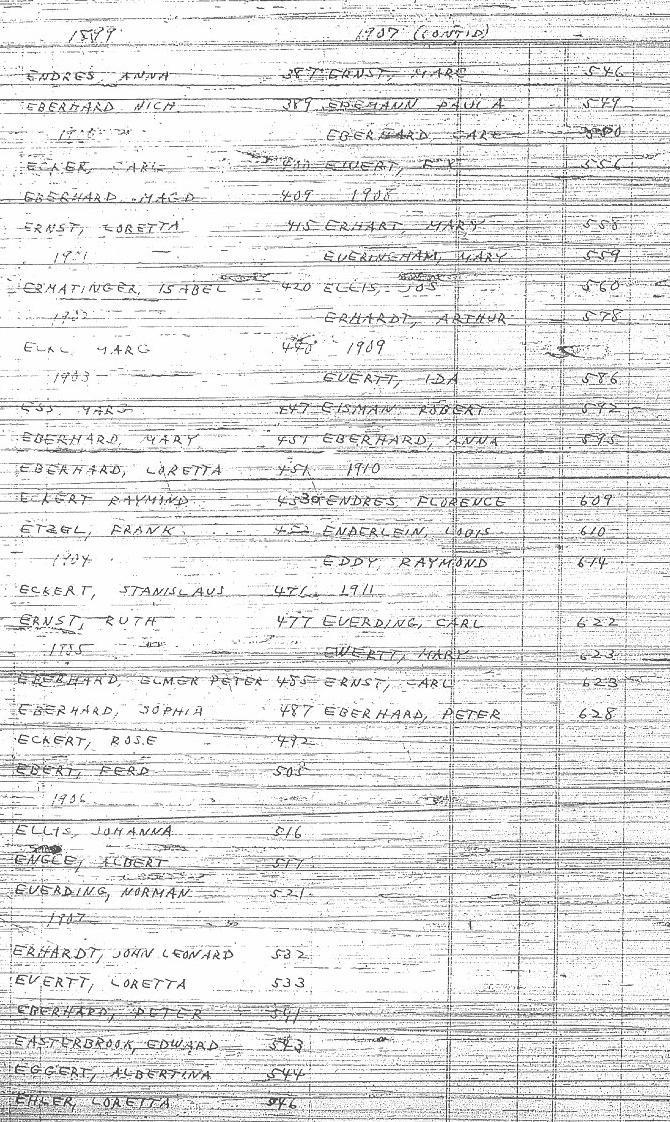 1899
ENDRES, ANNA 387
EBERHARD NICH 389
ECKER, CARL
EBERHARD MAGD 409
ERNST, LORETTA 415
1901
ERMATINGER, ISABEL 420
1902
MARG 440
1903
ESS MARG 447
EBERHARD, MARY 451
EBERHARD, LORETTA 451
ECKERT RAYMOND
ETZEL, FRANK 452
1904
ECKERT, STANISLAUS 476
ERNST, RUTH 477
1905
EBERHARD, ELMER PETER 485
EBERHARD, SOPHIA 487
ECKERT, ROSE 492
EBERT, FERD 505
1906
ELLIS, JOHANNA 516
ENGLE, ALBERT 517
EVERDING, NORMAN 521
1907
ERHARDT, JOHN LEONARD 532
EVERTT, LORETTA 533
EBERHARD, PETER 541
EASTERBROOK, EDWARD 543
EGGERT, ALBERTINA 544
EHLER, LORETTA 546
1907 (CONT'D)
ERNST, MARG 546
EDEMANN PAULA 549
EBERHARD CARL
EWERT, 556
1908
ERHART, MARY 558
EVERINGHAM, MARY 559
ELLIS, JOS 560
ERHARDT, ARTHUR 578
1909
EVERTT, IDA 586
EISMAN, ROBERT 592
EBERHARD, ANNA 595
1910
ENDRES, FLORENCE 609
ENDERLEIN, LOUIS 610
EDDY, RAYMOND 614
1911
EVERDING, CARL 622
EWERTT, MARY 623
ERNST, CARL 623
EBERHARD, PETER 628